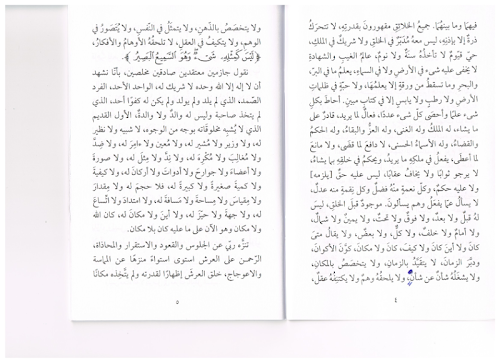 فيهما وما بينهُما. جميعُ الخلائقِ مقهورونَ بقدرتِهِ، لا تتحركُ
ذرةٌ إلا بإذنِهِ، ليس معهُ مُدَبّرٌ في الخلقِ ولا شريكٌ في الملكِ،
حيٌّ قيومٌ لا تأخذُهُ سنةٌ ولا نومٌ، عالمُ الغيبِ والشهادةِ
لا يخفى عليه شىءٌ في الأرضِ ولا في السماءِ، يعلمُ ما في البرّ
والبحرِ وما تسقطُ من ورقةٍ إلا يعلمُها، ولا حبةٍ في ظلماتِ
الأرضِ ولا رطبٍ ولا يابسٍ إلا في كتابٍ مبينٍ. أحاطَ بكلِ
شىءٍ علمًا وأحصى كلَّ شىءٍ عددًا، فعالٌ لما يريدُ، قادرٌ على
ما يشاءُ، له الملكُ وله الغنى، وله العزُّ والبقاءُ، وله الحكمُ
والقضاءُ، وله الأسماءُ الحسنى، لا دافعَ لما قضى، ولا مانعَ
لما أعطى، يفعلُ في ملكِهِ ما يريدُ، ويحكمُ في خلقِه بما يشاءُ.
لا يرجو ثوابًا ولا يخافُ عقابًا، ليس عليه حقٌّ [يلزمه]
ولا عليه حكمٌ، وكلُّ نعمةٍ منهُ فضلٌ وكلُ نِقمةٍ منه عدلٌ،
لا يُسألُ عمّا يفعلُ وهم يسألونَ. موجودٌ قبلَ الخلقِ، ليس
لهُ قبلٌ ولا بعدٌ، ولا فوقٌ ولا تحتٌ، ولا يمينٌ ولا شمالٌ،
ولا أمامٌ ولا خلفٌ، ولا كلٌّ، ولا بعضٌ، ولا يقالُ متى
كانَ ولا أينَ كانَ ولا كيفَ، كان ولا مكان، كوَّنَ الأكوانَ،
ودبَّر الزمانَ، لا يتقيَّدُ بالزمانِ، ولا يتخصَّصُ بالمكانِ،
ولا يشغَلُهُ شأنٌ عن شأنٍ، ولا يلحقُهُ وهمٌ ولا يكتنِفُهُ عقلٌ،
٤
ولا يتخصَّصُ بالذهنِ، ولا يتمثلُ في النفسِ، ولا يُتصَورُ في
الوهمِ، ولا يتكيفُ في العقلِ، لا تلحقُهُ الأوهامُ والأفكارُ،
﴿لَيْسَ كَمِثْلِهِ شَىْءٌ وَهُوَ السَّمِيعُ الْبَصِيرُ﴾.
نقول جازمين معتقدين صادقين مخلصين، بأنّا نشهد
أن لا إله إلا الله وحده لا شريك له، الواحد الأحد الفرد
الصّمد، الذي لم يلد ولم يولد ولم يكن له كفوًا أحد، الذي
لم يتخذ صاحبة وليس له والدٌ ولا والدةٌ، الأول القديم
الذي لا يُشبِه مخلوقاته بوجه من الوجوه، لا شبيه ولا نظير
له، ولا وزير ولا مُشير له، ولا مُعين ولا ءامِرَ له، ولا ضِدَّ
ولا مُغالِبَ ولا مُكْرِهَ له، ولا نِدَّ ولا مِثْلَ له، ولا صورةَ
ولا أعضاءَ ولا جوارحَ ولا أدواتَ ولا أركانَ له، ولا كيفيةَ
ولا كميةَ صغيرةً ولا كبيرةً له، فلا حجمَ له، ولا مِقدارَ
ولا مِقياسَ ولا مِساحةَ ولا مَسافةَ له، ولا امتدادَ ولا اتّساعَ
له، ولا جهةَ ولا حيّزَ له، ولا أينَ ولا مكانَ له، كان الله
ولا مكان وهو الآن على ما عليه كان بلا مكان.
تنزَّه ربّي عن الجلوس والقعود والاستقرار والمحاذاة،
الرّحمـن على العرش استوى استواءً منزهًا عن المماسة
والاعوجاج، خلق العرشَ إظهارًا لقدرته ولم يتَّخِذه مكانًا
٥